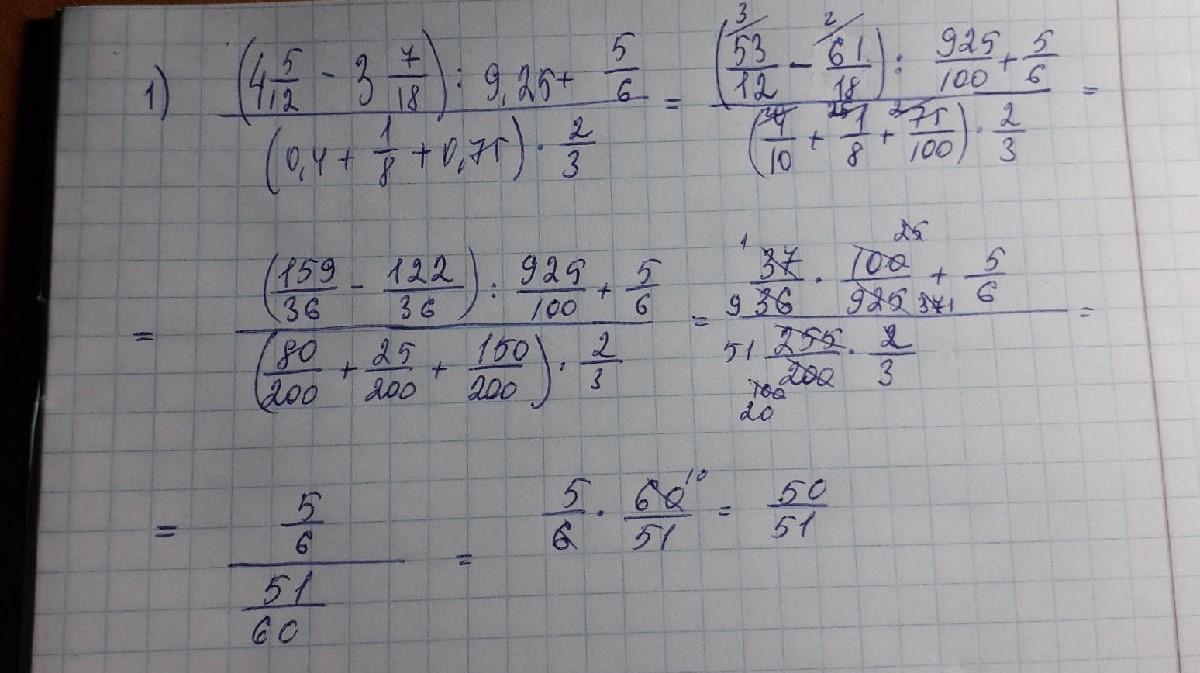 1) (4 5/12 - 3 7/18) : 9,25 + 5/6 / (0,4 + 1/8 + 0,75) · 2/3 = (53/12 - 61/18) : 925/100 + 5/6 / (4/10 + 1/8 + 75/100) · 2/3 =
= (159/36 - 122/36) : 925/100 + 5/6 / (80/200 + 25/200 + 150/200) · 2/3 = 37/36 · 100/925 + 5/6 / 255/200 · 2/3 =
= 5/6 / 51/60 = 5/6 · 60/51 = 50/51